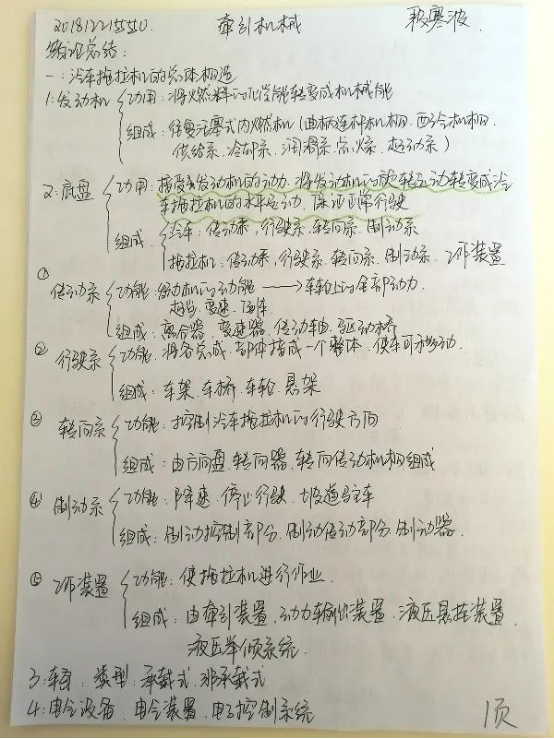 20181221550. 牵引机械
绪论总结：
一：汽车拖拉机的总体构造
1.发动机 功用：将燃料的化学能转变成机械能
组成：往复活塞式内燃机（曲柄连杆机构、配气机构、
供给系、冷却系、润滑系、点火系、起动系）
2.底盘 功用：接受发动机的动力，将发动机的旋转运动转变成汽
车拖拉机的水平运动，保证正常行驶
组成 汽车：传动系，行驶系，转向系，制动系
拖拉机：传动系，行驶系，转向系，制动系，工作装置
① 传动系 功能：发动机的动能——→车轮上的全部动力.
起步，变速，倒车
组成：离合器，变速器，传动轴，驱动桥
② 行驶系 功能：将各总成，部件接成一个整体，使车可移动.
组成：车架，车桥，车轮，悬架
③ 转向系 功能：控制汽车拖拉机的行驶方向
组成：由方向盘，转向器，转向传动机构组成
④ 制动系 功能：降速，停止行驶，坡道驻车
组成：制动控制部分，制动传动部分，制动器.
⑤ 工作装置 功能：使拖拉机进行作业.
组成：由牵引装置，动力输出装置，液压悬挂装置
液压举倾系统.
3.车身，类型，承载式，非承载式
4.电气设备，电气装置，电子控制系统
1页